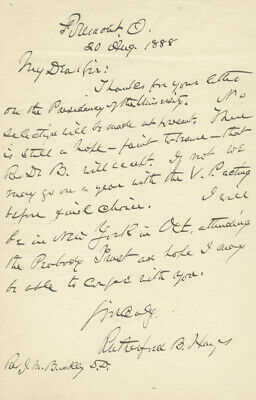 Fremont, O.
20 Aug. 1888
My Dear Sir:
Thanks for your letter
on the Presidency of the University. No
selection will be made at present. There
is still a hope – faint to be sure – that
Rev Dr B. will accept. If not we
may go on a year with the V. P. acting
before final choice. I will
be in New York in Oct, attending
the Peabody Trust and hope I may
be able to confer with you.
Sincerely,
Rutherford B. Hayes
Rev J. M. Buckley D.D.